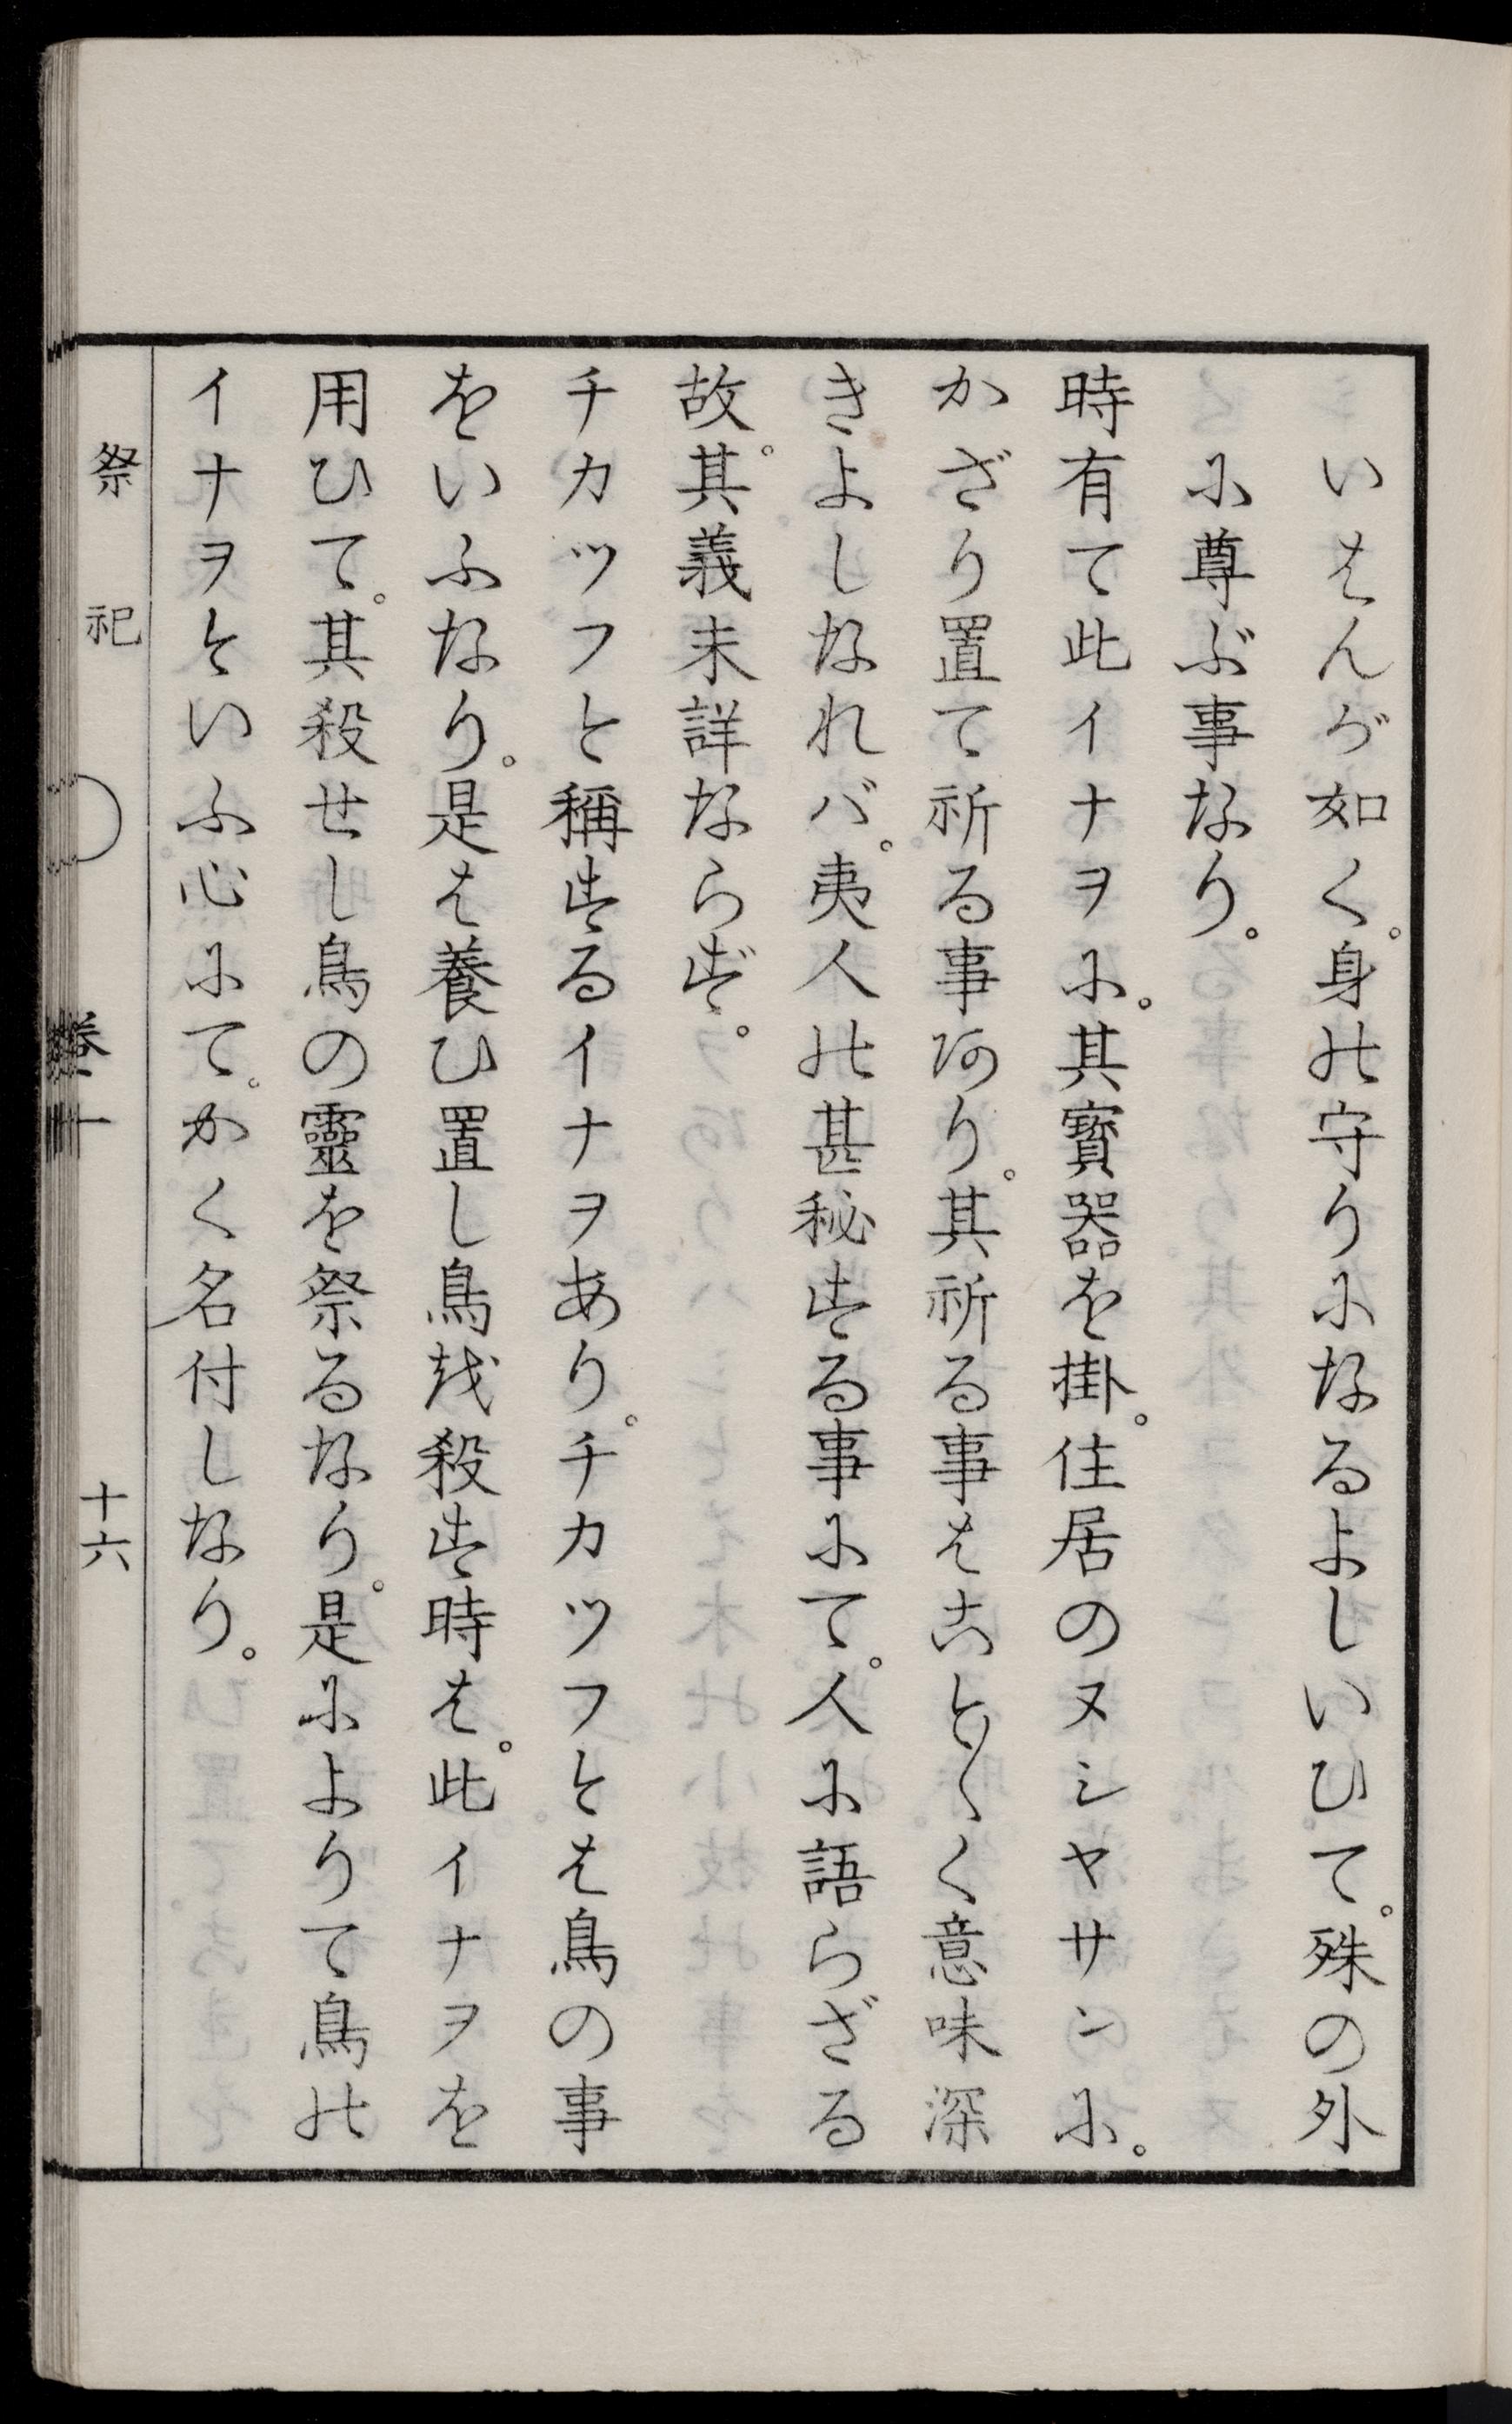 いはんが如く。身の守りになるよしいひて。殊の外
に尊ぶ事なり。
時有て此イナヲに。其寳器を掛。住居のヌシヤサンに。
かざり置て祈る事あり。其祈る事はこと〴〵く意味深
きよしなれバ。夷人の甚秘する事にて。人に語らざる
故。其義未詳ならず。
チカツフと稱するイナヲあり。チカツフとは鳥の事
をいふなり。是は養ひ置し鳥を殺す時は。此イナヲを
用ひて。其殺せし鳥の靈を祭るなり。是によりて鳥の
イナヲといふ心にて。かく名付しなり。
祭祀 卷十一 十六